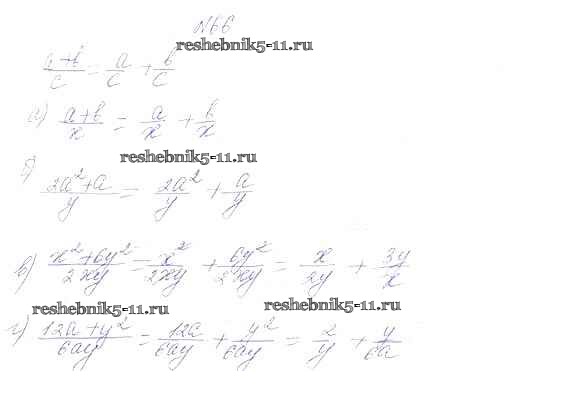 №66
reshebnik5-11.ru
(a+b)/c = a/c + b/c
а) (a+b)/x = a/x + b/x
reshebnik5-11.ru
б) (2a²+a)/y = 2a²/y + a/y
в) (x²+6y²)/2xy = x²/2xy + 6y²/2xy = x/2y + 3y/x
reshebnik5-11.ru reshebnik5-11.ru
г) (12a+y²)/6ay = 12a/6ay + y²/6ay = 2/y + y/6a